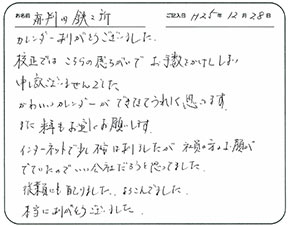 お名前 有判田鉄工所 ご記入日 H25年12月28日
カレンダーありがとうございました。
校正ではこちらの思ちがいでお手数をかけてしまい
申し訳ございませんでした。
かわいいカレンダーができてうれしく思っています。
また来年もお逹にお願いします。
インターネットで少し不安はありましたが社員の方のお顔が
でていたのでいい会社だろうと思ってました。
従業員にも配りました。よろこんでました。
本当にありがとうございました。